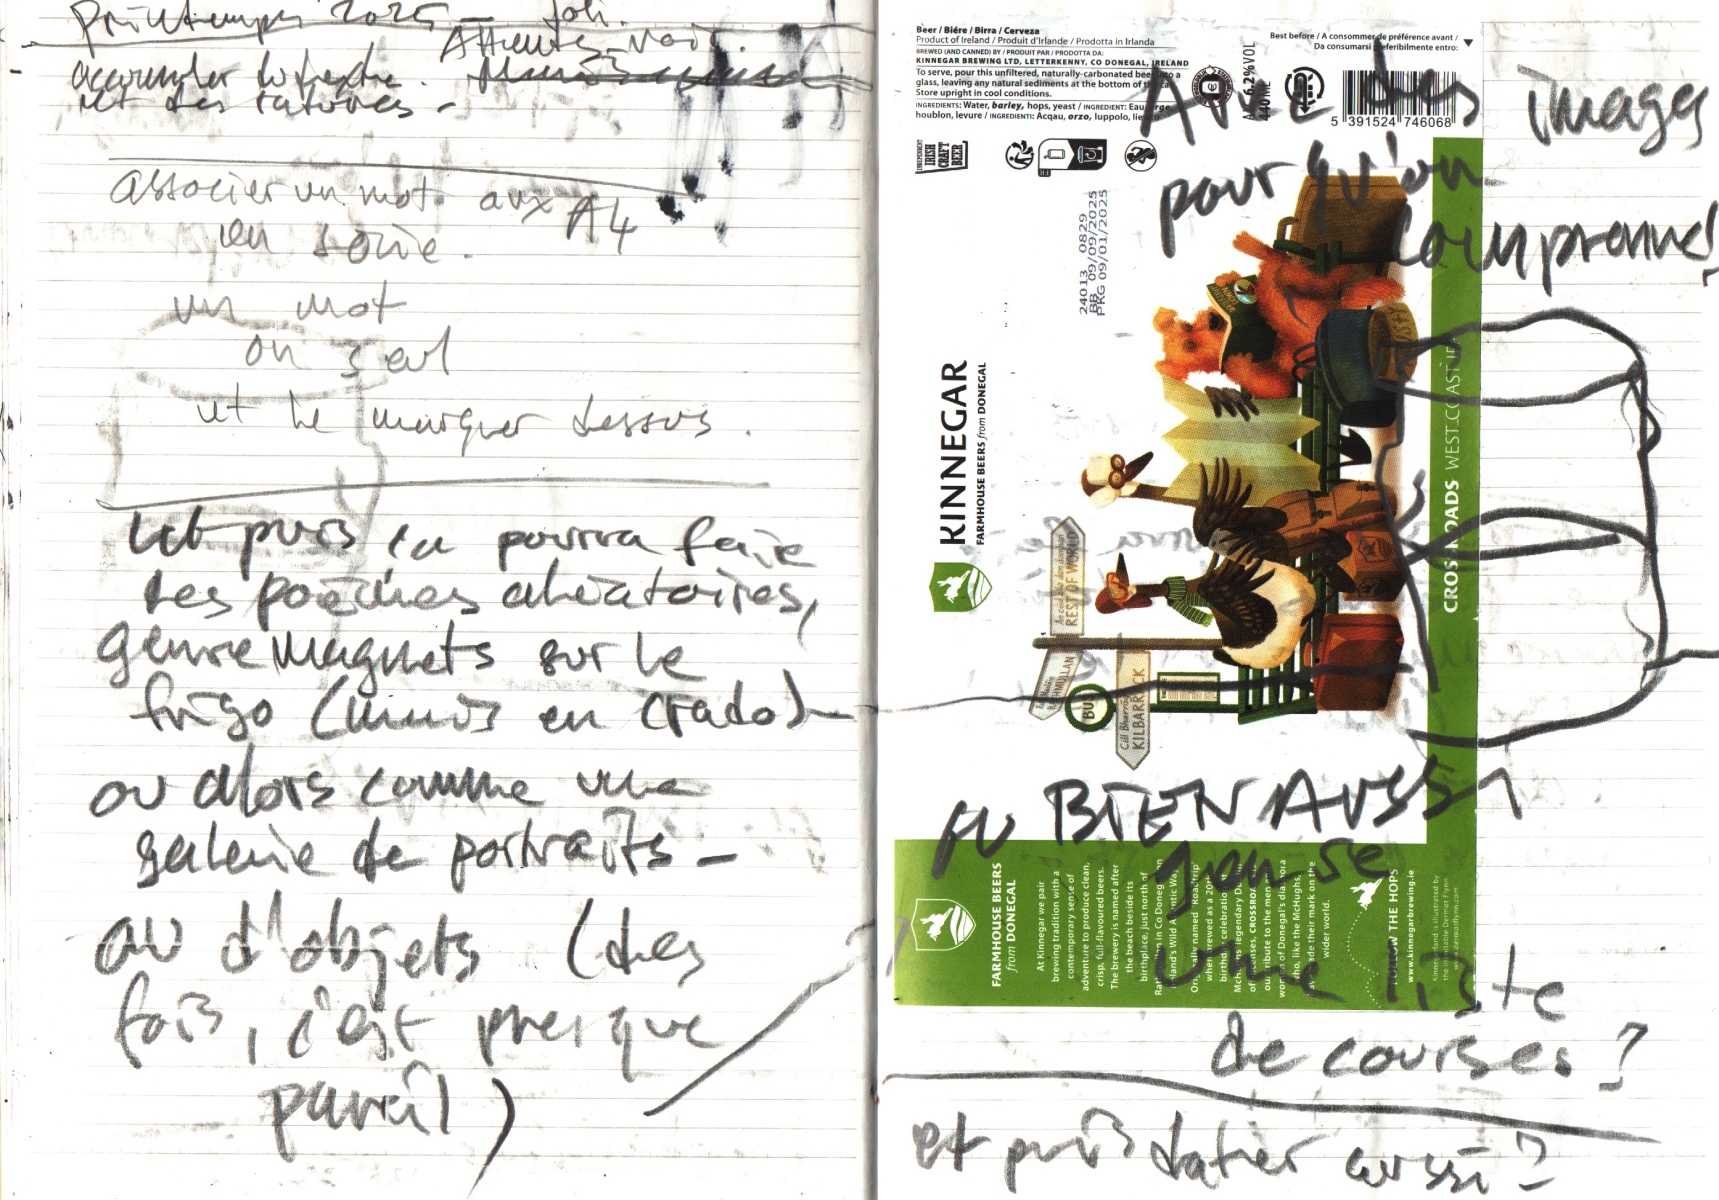 Printemps 2025 — joli.
Attentes
accrocher
et des ratures —
associer un mot aux A4
en série.
un mot
un seul
et le marquer dessus.
Et puis ça pourra faire
des poèmes aléatoires,
genre magnets sur le
frigo (mais en crado)
ou alors comme une
galerie de portraits —
ou d'objets (des
fois, c'est presque
pareil)
Avec des images
pour qu'on
comprenne!
ou BIEN AUSSI
genre
une liste
de courses ?
et puis dater aussi ?
Beer / Bière / Birra / Cerveza
Product of Ireland / Produit d'Irlande / Prodotta in Irlanda
BREWED (AND CANNED) BY / PRODUIT PAR / PRODOTTA DA:
KINNEGAR BREWING LTD, LETTERKENNY, CO DONEGAL, IRELAND
To serve, pour this unfiltered, naturally-carbonated beer into a
glass, leaving any natural sediments at the bottom of the
Store upright in cool conditions.
INGREDIENTS: Water, barley, hops, yeast / INGREDIENT: Eau,
houblon, levure / INGREDIENTI: Acqau, orzo, luppolo,
Best before / A consommer de préférence avant /
Da consumarsi preferibilmente entro:
6.2%VOL
440
5 391524 746068
INDEPENDENT
IRISH
CRAFT
BEER
FR
24013 0829
BB 09/09/2025
PKG 09/01/2025
KINNEGAR
FARMHOUSE BEERS from DONEGAL
REST OF WORLD
BUS
KILBARRACK
CROSSROADS WEST COAST
FARMHOUSE BEERS
from DONEGAL
At Kinnegar we pair
brewing tradition with a
contemporary sense of
adventure to produce clean,
crisp, full-flavoured beers.
The brewery is named after
the beach beside its
birthplace, just north of
in Co Donegal on
Ireland's Wild Atlantic Way.
Originally named 'Roadtrip'
when brewed as a 20th
birthday celebration
legendary
CROSSROADS
tribute to the men
women of Donegal's diaspora
who, like the McHughs,
made their mark on the
wider world.
FOLLOW THE HOPS
www.kinnegarbrewing.ie
Kinnegarland is illustrated by
the inimitable Dermot Flynn.
www.dermotflynn.com